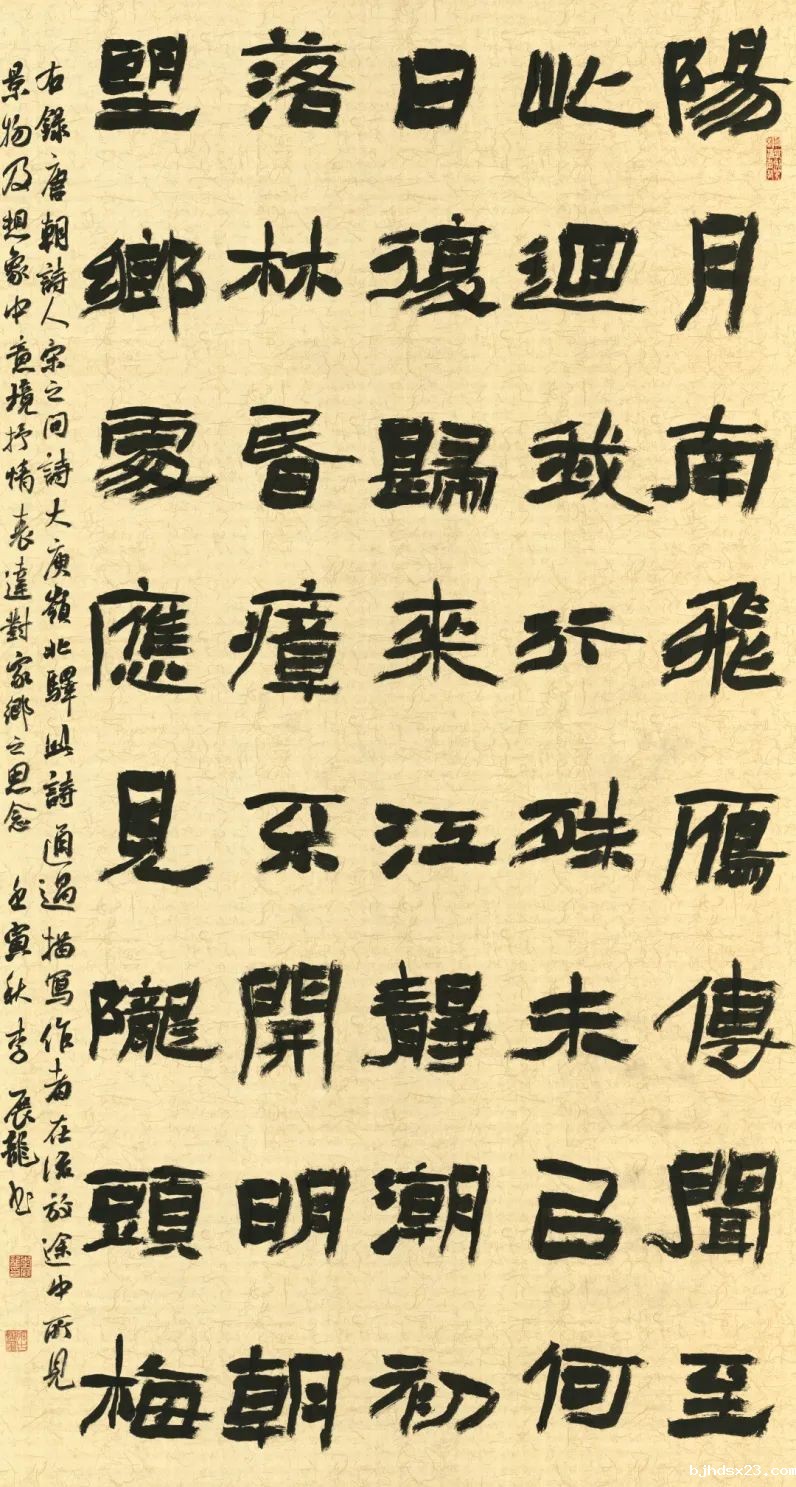 陽月南飛鴈傳聞至
此迴我行殊未已何
日復歸來江靜潮初
落林昏瘴不開明朝
望鄉處應見隴頭梅
右錄唐朝詩人宋之问詩大庾嶺北驛此詩通過描寫作者在流放途中所見
景物及想象中意境抒情表達對家鄉之思念 壬寅秋李展龍书
bjhdsx23.com